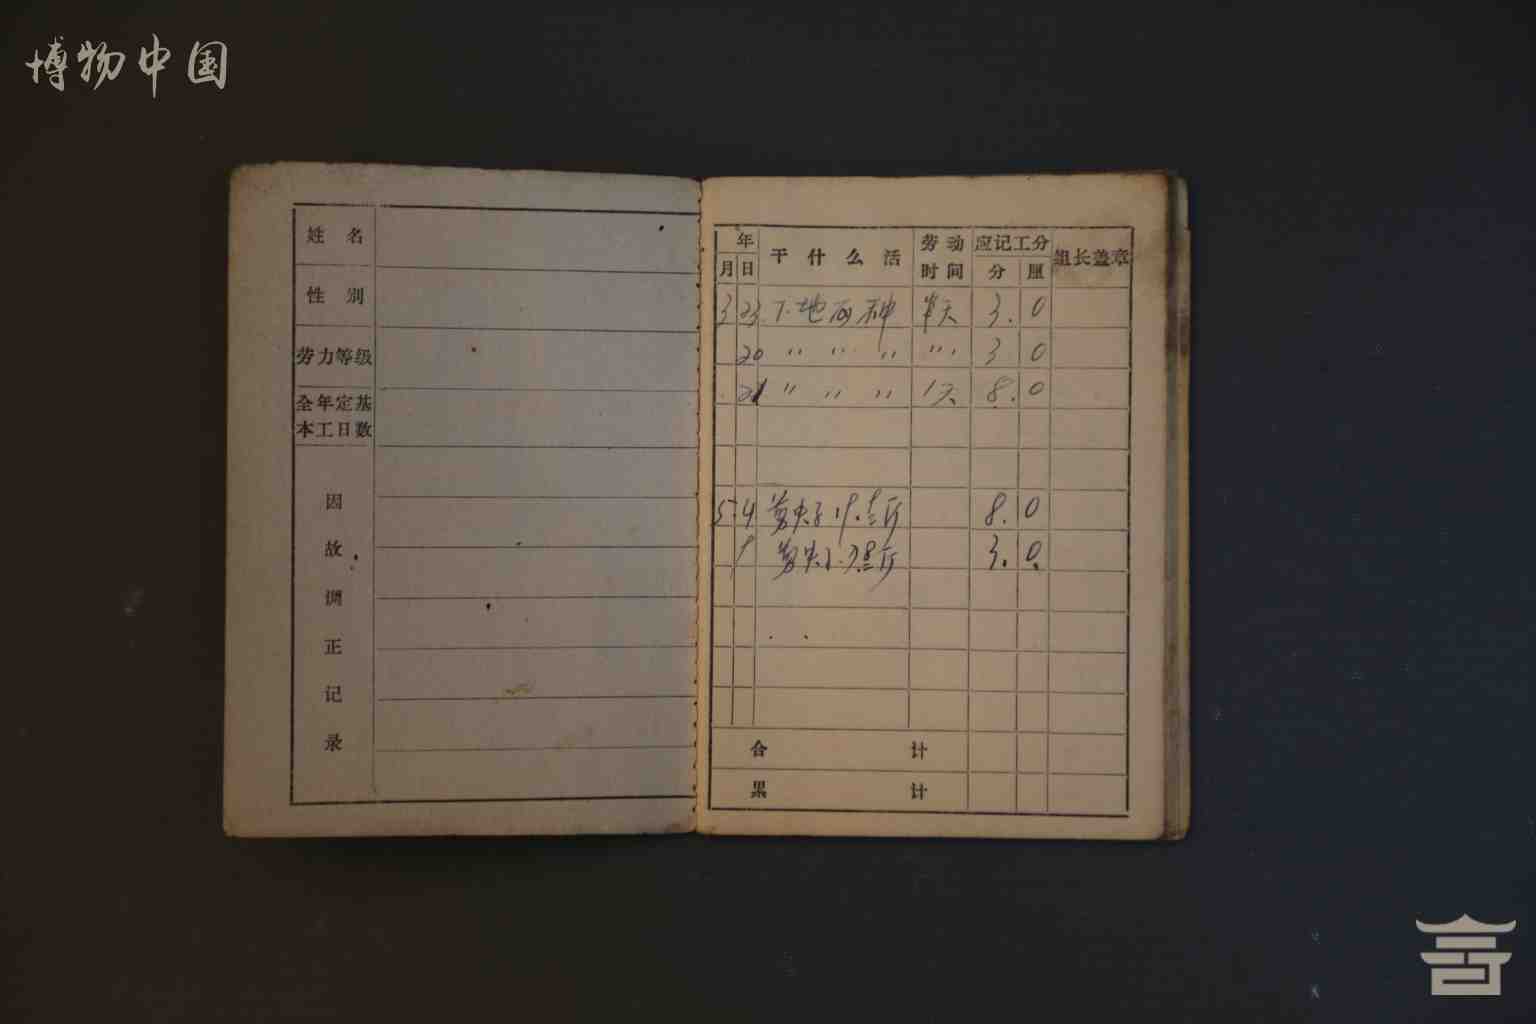 博物中国
姓名
性别
劳力等级
全年定基
本工日数
因故调正记录
年 干什么活 劳动 应记工分 组长盖章
月 日 时间 分 厘
3 23 下地 种 半天 3. 0
20 〃 〃 〃 〃 3 0
21 〃 〃 〃 1天 8. 0
5 4 斤 8. 0
斤 3. 0
合计
累计